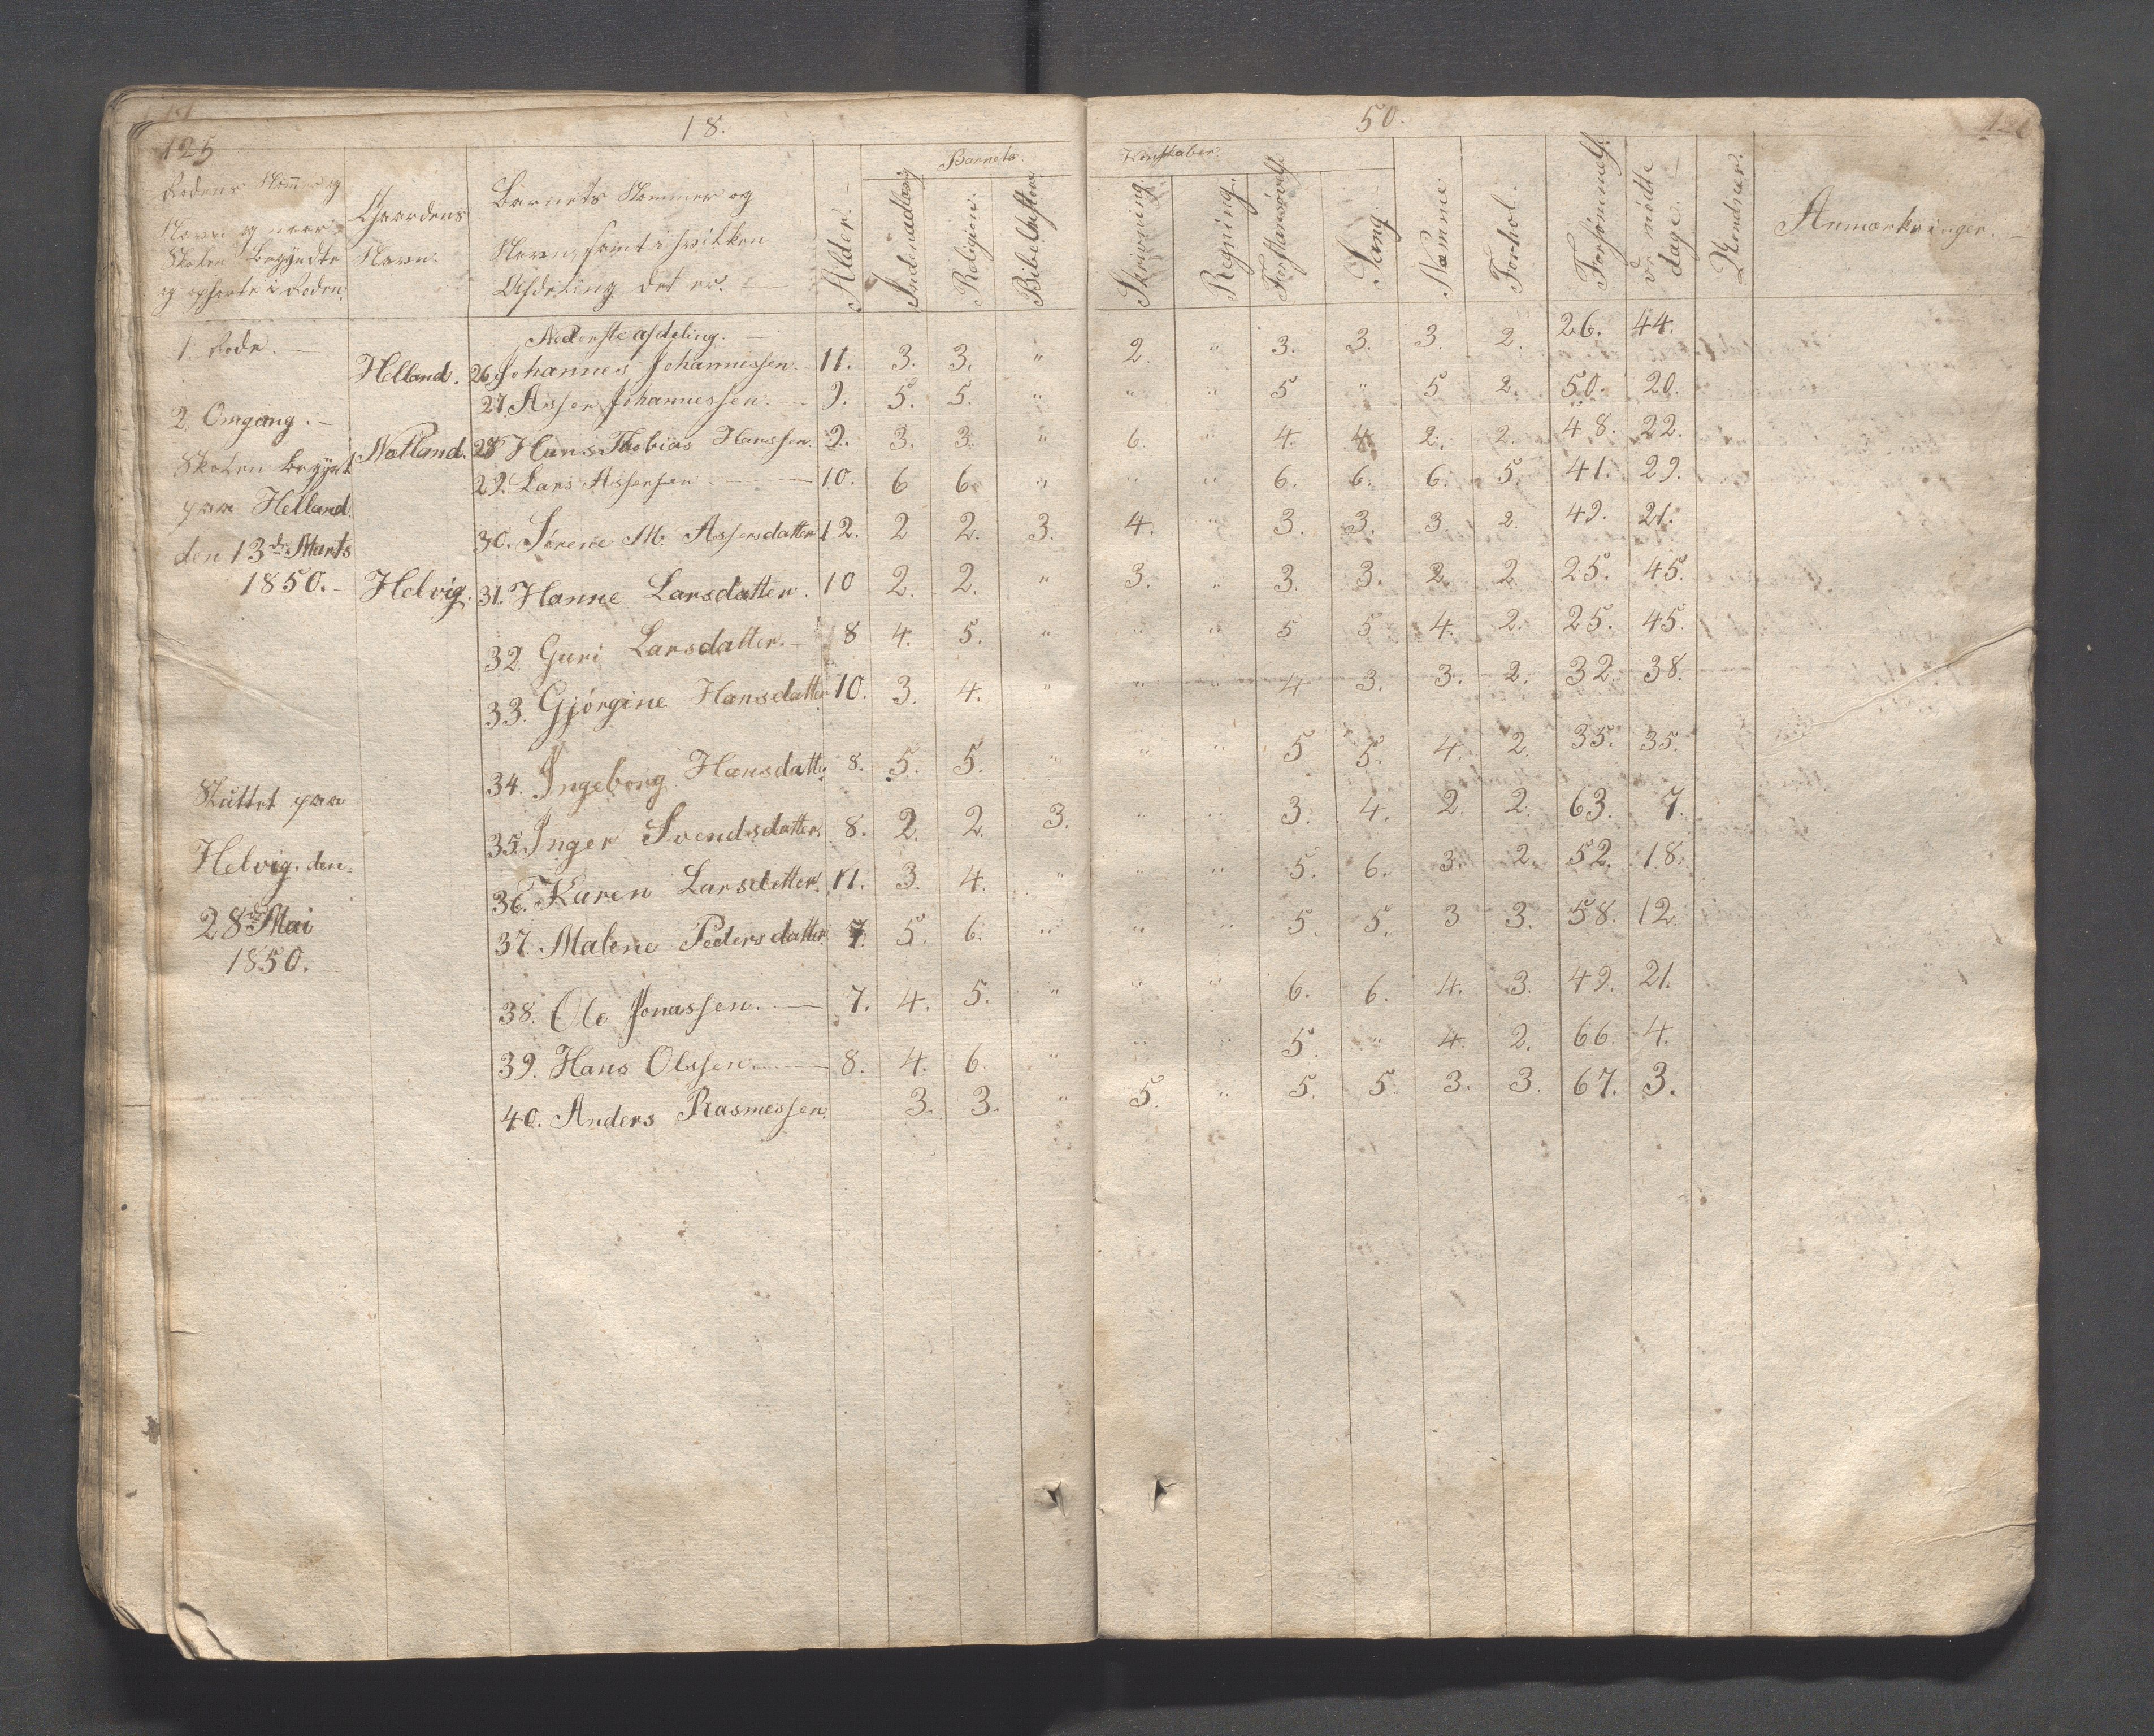 125 18. 50.
Rodens Nommer og
Navn og naar
Skolen begyndte
og ophørte i Roden.
Gaardens
Navn.
Barnets Nommer og
Navn, samt i hvilken
Afdeling det er.
Alder.
Barnets Kundskaber
Indenadlæsning
Religion.
Bibelhistorie
Skrivning.
Regning.
Forstandsøvelse
Sang
Næmme
Forhol.
Forsømmelse
mødte
dage.
Anmærkninger.
1. Rode. Nederste afdeling.
Helland. 26. Johannes Johannessen. 11. 3. 3. " 2. " 3. 3. 3. 2. 26. 44.
27. Asser Johannessen. 9. 5. 5. " " " 5 " 5 2. 50. 20.
2. Omgang.
Nolland. 28 Hans Thobias Hanssen 9. 3. 3. " 6. " 4. 4. 2. 2. 48. 22.
Skolen begynt
29. Lars Assersen 10. 6 6 " " " 6. 6. 6. 5. 41. 29.
paa Helland
30. Sørene M. Assersdatter 12. 2 2. 3. 4. " 3. 3. 3. 2. 49. 21.
den 13de Marts
1850. Helvig. 31. Hanne Larsdatter. 10 2. 2. " 3. " 3. 3. 2. 2. 25. 45.
32. Guri Larsdatter. 8 4. 5. " " " 5 5 4. 2. 25. 45.
33. Gjørgine Hansdatter 10. 3. 4. " " " 4 3. 3. 2. 32. 38.
34. Ingeborg Hansdatter 8. 5. 5. " " " 5 5. 4. 2. 35. 35.
Sluttet paa
35. Inger Svendsdatter 8. 2. 2. 3. " " 3. 4. 2. 2. 63. 7.
Helvig. den
36. Karen Larsdatter. 11. 3. 4. " " " 5. 6. 3. 2. 52. 18.
28de Mai
37. Malene Pedersdatter. 7. 5. 6. " " " 5. 5. 3 3. 58. 12.
1850.
38. Ole Jonassen. 7. 4. 5. " " " 6. 6. 4. 3. 49. 21.
39. Hans Olssen 8. 4. 6. " " " 5. " 4. 2. 66. 4.
40. Anders Rasmessen. 3. 3. " 5. " 5. 5. 3. 3. 67. 3.